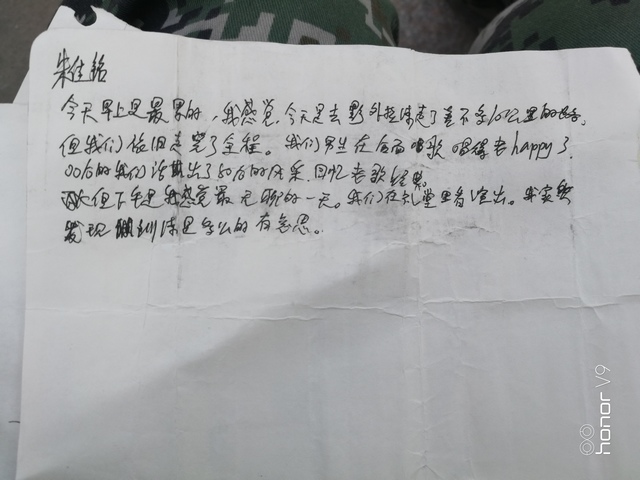 朱佳铭
今天早上是最累的,我感觉,今天是去野外拉练走了差不多10公里的路,
但我们依旧走完了全程。我们男生在后面唱歌 唱得老happy了,
00后的我们活出了80后的风采,回忆老歌经典。
但下午是我感觉最无聊的一天。我们在礼堂里看演出。我突然
发现训练是多么的有意思。
honor V9